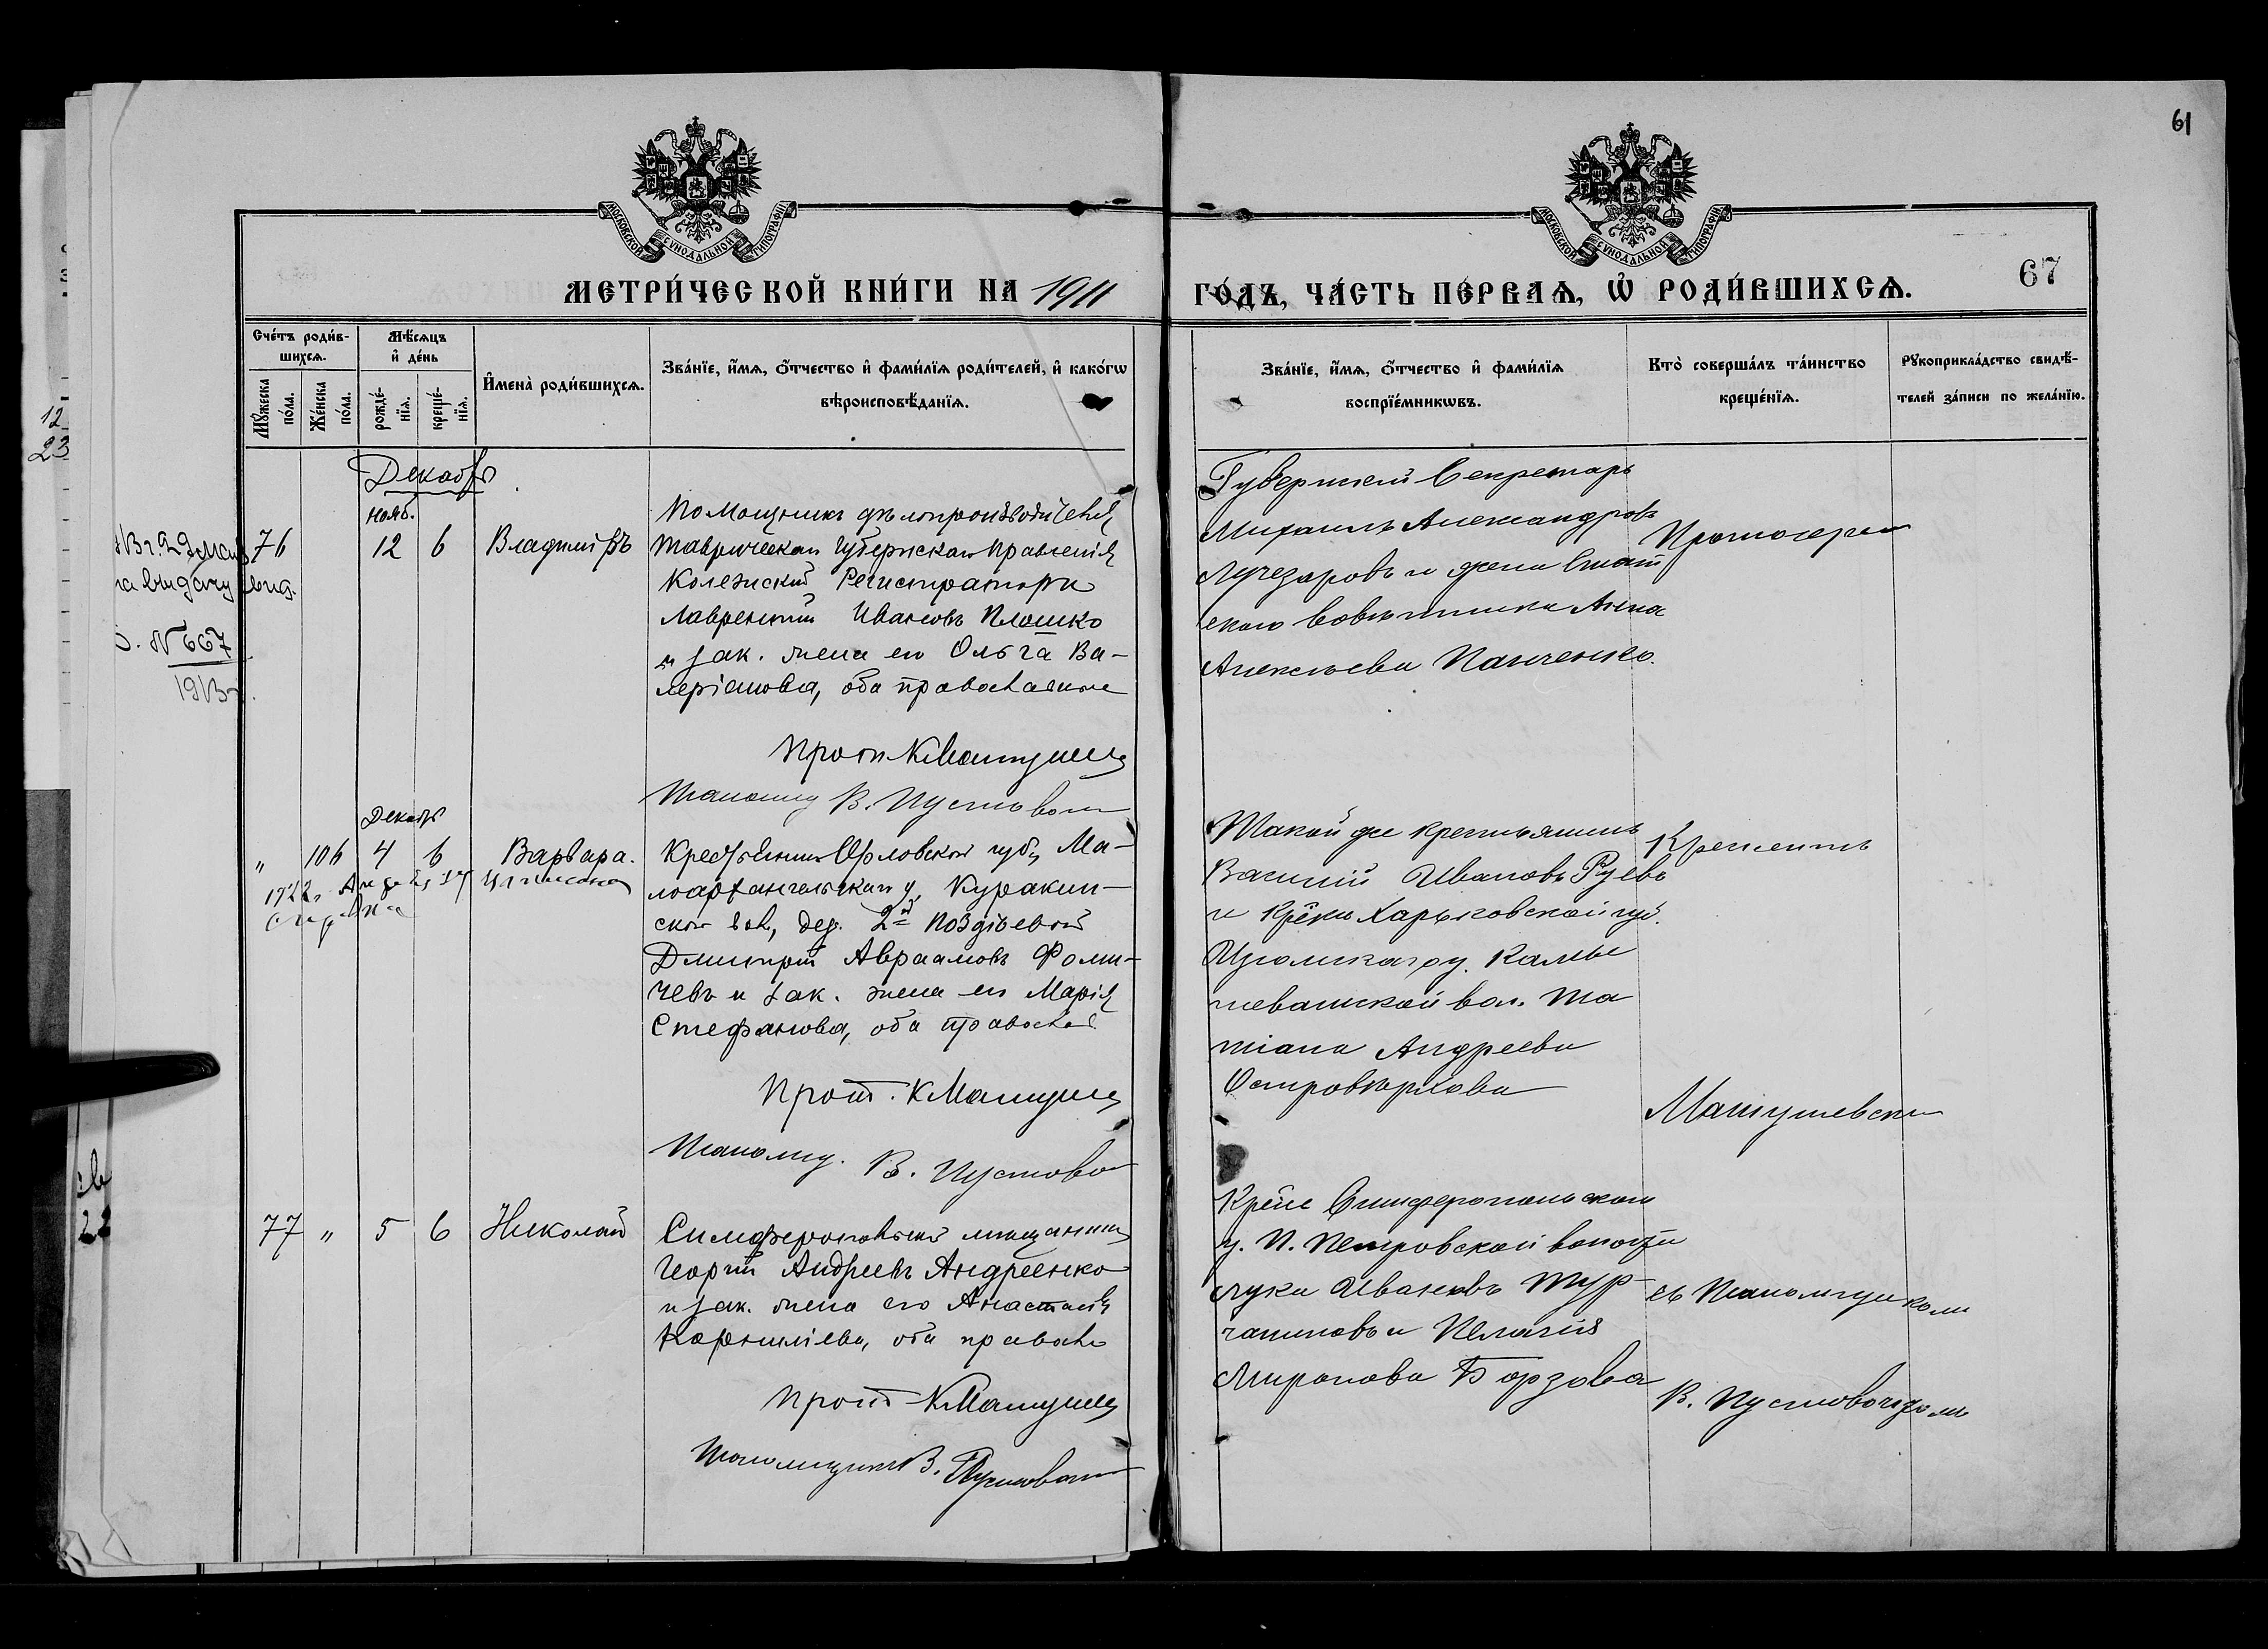 61
МОСКОВСКОЙ СѴНОДАЛЬНОЙ ТИПОГРАФІИ
МОСКОВСКОЙ СѴНОДАЛЬНОЙ ТИПОГРАФІИ
МЕТРИ́ЧЕСКОЙ КНИ́ГИ НА 1911
ГО́ДЪ, ЧА́СТЬ ПЕ́РВАѦ, Ѡ҆ РОДИ́ВШИХСѦ.
67
Сче́тъ роди́в-
шихсѧ.
Мѣ́сѧцъ
и҆ де́нь
Мꙋ́жеска
по́ла.
Же́нска
по́ла.
рожде́-
нїѧ.
креще́-
нїѧ.
И҆мена̀ роди́вшихсѧ.
Зва́нїе, и҆́мѧ, ѻ҆́тчество и҆ фами́лїѧ роди́телей, и҆ како́гѡ
вѣроисповѣ́данїѧ.
Зва́нїе, и҆́мѧ, ѻ҆́тчество и҆ фами́лїѧ
воспрїе́мникѡвъ.
Кто̀ соверша́лъ та́инство
креще́нїѧ.
Рꙋкоприкла́дство свидѣ́-
телей за́писи по жела́нїю.
12
23
Декабрь
нояб.
76
12
6
Владиміръ
Помощникъ дѣлопроизводителя
Таврическаго Губернскаго Правленія
Колежский Регистраторъ
Лаврентий Ивановъ Плошко
и зак. жена его Ольга Ва-
леріанова, оба православные
Прот. К Матушев
Псаломщ В. Пустовой
№ 667
1913 г.
Губернский Секретарь
Михаилъ Александровъ
Лучезаровъ и жена Стат
скаго Совѣтника Анна
Алексѣева Панченко.
Протоіерей
Декабр
"
106
4
6
Варвара.
1922 г
справка
Крестьянинъ Орловской губ, Ма-
лоархангельскаго у, Куракин-
ской вол, дер. 2й Поздѣевой
Дмитрій Авраамовъ Фоми-
чевъ и зак. жена его Марія
Стефанова, оба правосла
Прот. К Матушев
Псаломщ. В. Пустово
Такой же крестьянинъ
Василий Ивановъ Руевъ
и Кр-ка Харьковской губ.
Изюмскаго у. Камы
шевашской вол. Та
тіана Андреева
Островерхова
Крестилъ
Матушевский
77
"
5
6
Николай
Симферопольский мещанинъ
Георгий Андреевъ Андреенко
и зак. жена его Анастасія
Корниліева, оба правосла
Прот К Матушев
Псаломщикъ В. Пустовой
Кр-не Симферопольскаго
у. П. Петровской волости
Лука Ивановъ Тур-
чаниновъ и Пелагія
Миронова Борзова
съ Псаломщикомъ
В. Пустовойтомъ